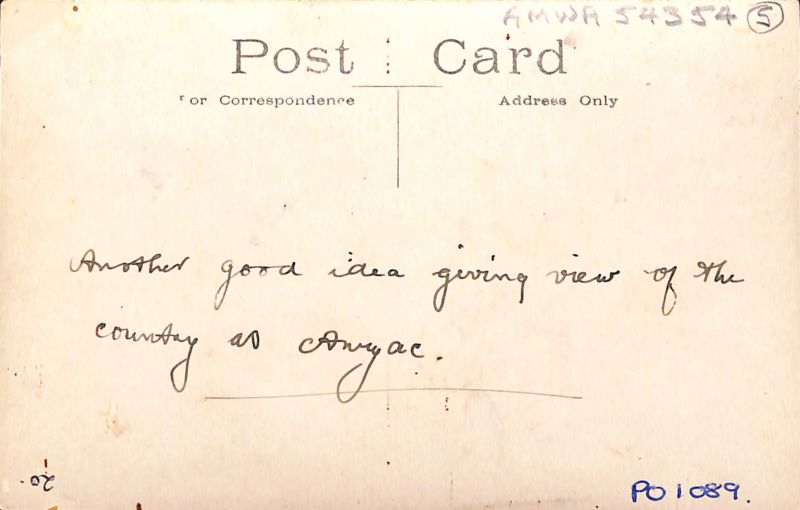 AMWA 54354 5
Post Card
For Correspondence Address Only
Another good idea giving view of the
country at Anzac.
20.
PO1089.